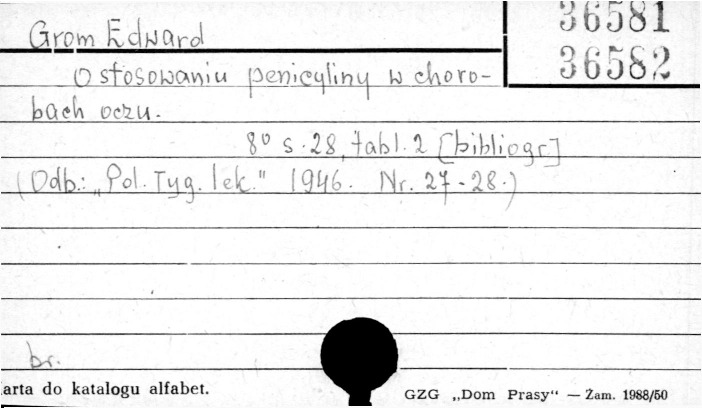 36581
Grom Edward
36582
O stosowaniu penicyliny w choro-
bach oczu.
8º s. 28, tabl. 2 [bibliogr]
(Odb.: „Pol. Tyg. lek." 1946. Nr. 27-28.)
br.
arta do katalogu alfabet.
GZG „Dom Prasy“ — Zam. 1988/50